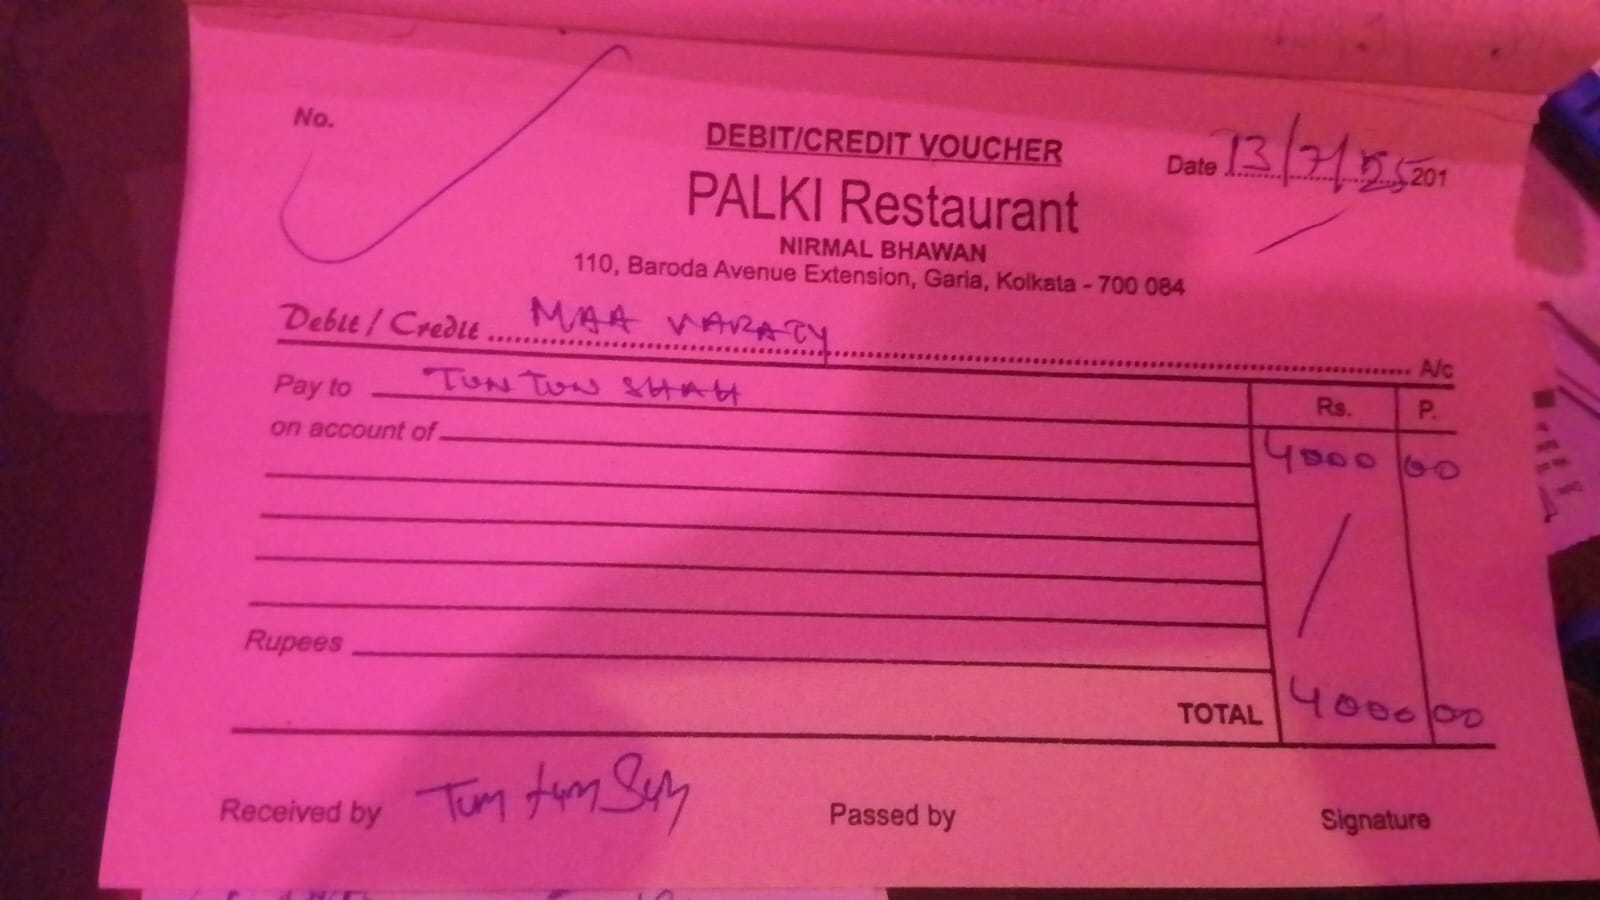 No.
DEBIT/CREDIT VOUCHER
Date 13/7/25 201
PALKI Restaurant
NIRMAL BHAWAN
110, Baroda Avenue Extension, Garia, Kolkata - 700 084
Debit / Credit MAA A/c
Pay to TUN TUN SHAH
Rs. P.
on account of
4000 00
Rupees
TOTAL 4000 00
Received by Tun tun
Passed by
Signature